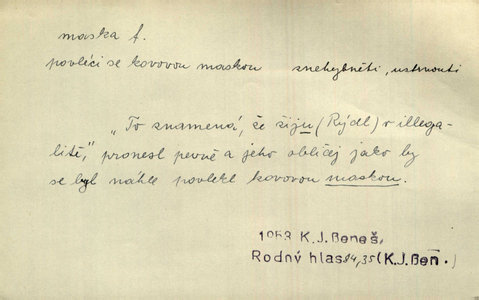 maska f.
povléci se kovovou maskou   znehybněti, ustrnouti
„To znamená, že žiju (Rýdl) v illega-
litě,“ pronesl pevně a jeho obličej jako by
se byl náhle povlekl kovovou maskou.
1953 K.J.Beneš,
Rodný hlas 84,35 (K.J.Ben.)